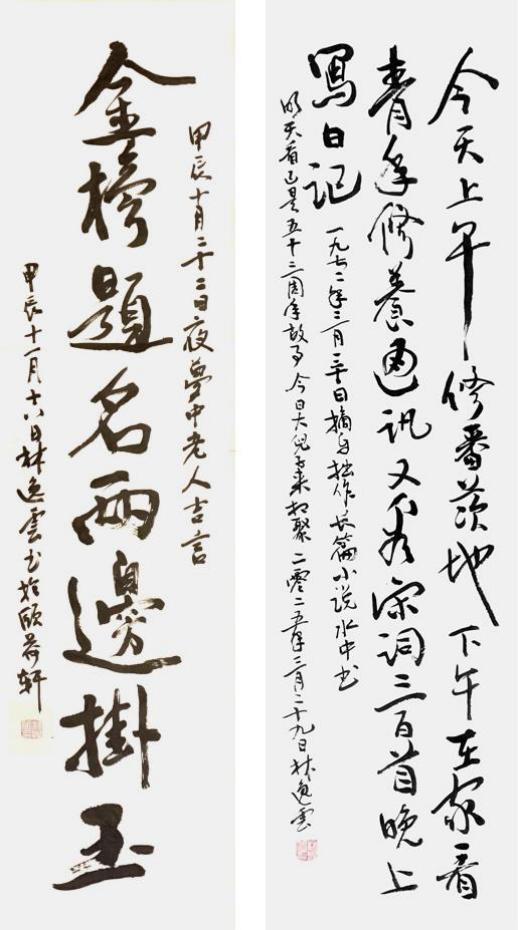 今天上午修番茨地下午在家看
青年修養通讯又看宋词三百首晚上
寫日记
一九七二年三月三十日摘自拙作长篇小说水中书
明天看已是五十三周年故事今日大儿子来相聚二零二五年三月二十九日林逸雲
甲辰十月二十二日夜夢中老人吉言
金榜題名兩邊掛玉
甲辰十一月十六日林逸雲书於頤荷轩